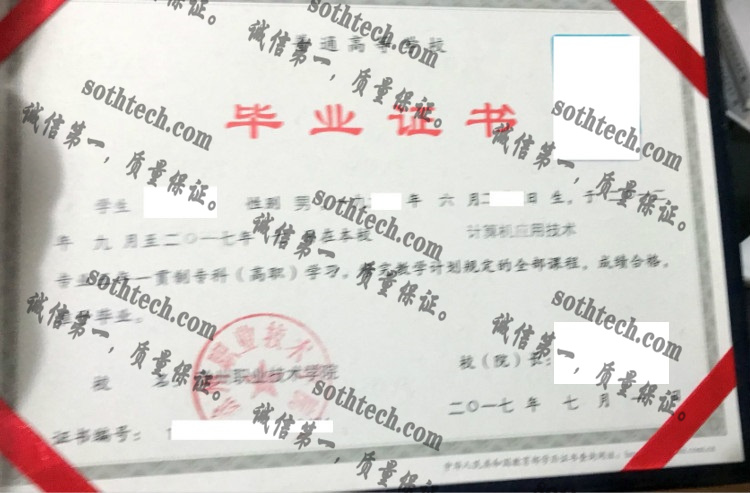 普通高等学校
毕业证书
学生 性别 男 年 六 月二 日 生，于
年 九 月至二〇一七年 在本校 计算机应用技术
专业 一贯制专科（高职）学习， 完教学计划规定的全部课程，成绩合格，
毕业。
校 职业技术学院 校（院）长：
二〇一七 年 七 月
证书编号：
中华人民共和国教育部学历证书查询网址：
职业技术
sothtech.com
诚信第一，质量保证。
sothtech.com
诚信第一，质量保证。
sothtech.com
诚信第一，质量保证。
sothtech.com
诚信第一，质量保证。
sothtech.com
诚信第一，质量保证。
sothtech.com
诚信第一，质量保证。
sothtech.com
诚信第一，质量保证。